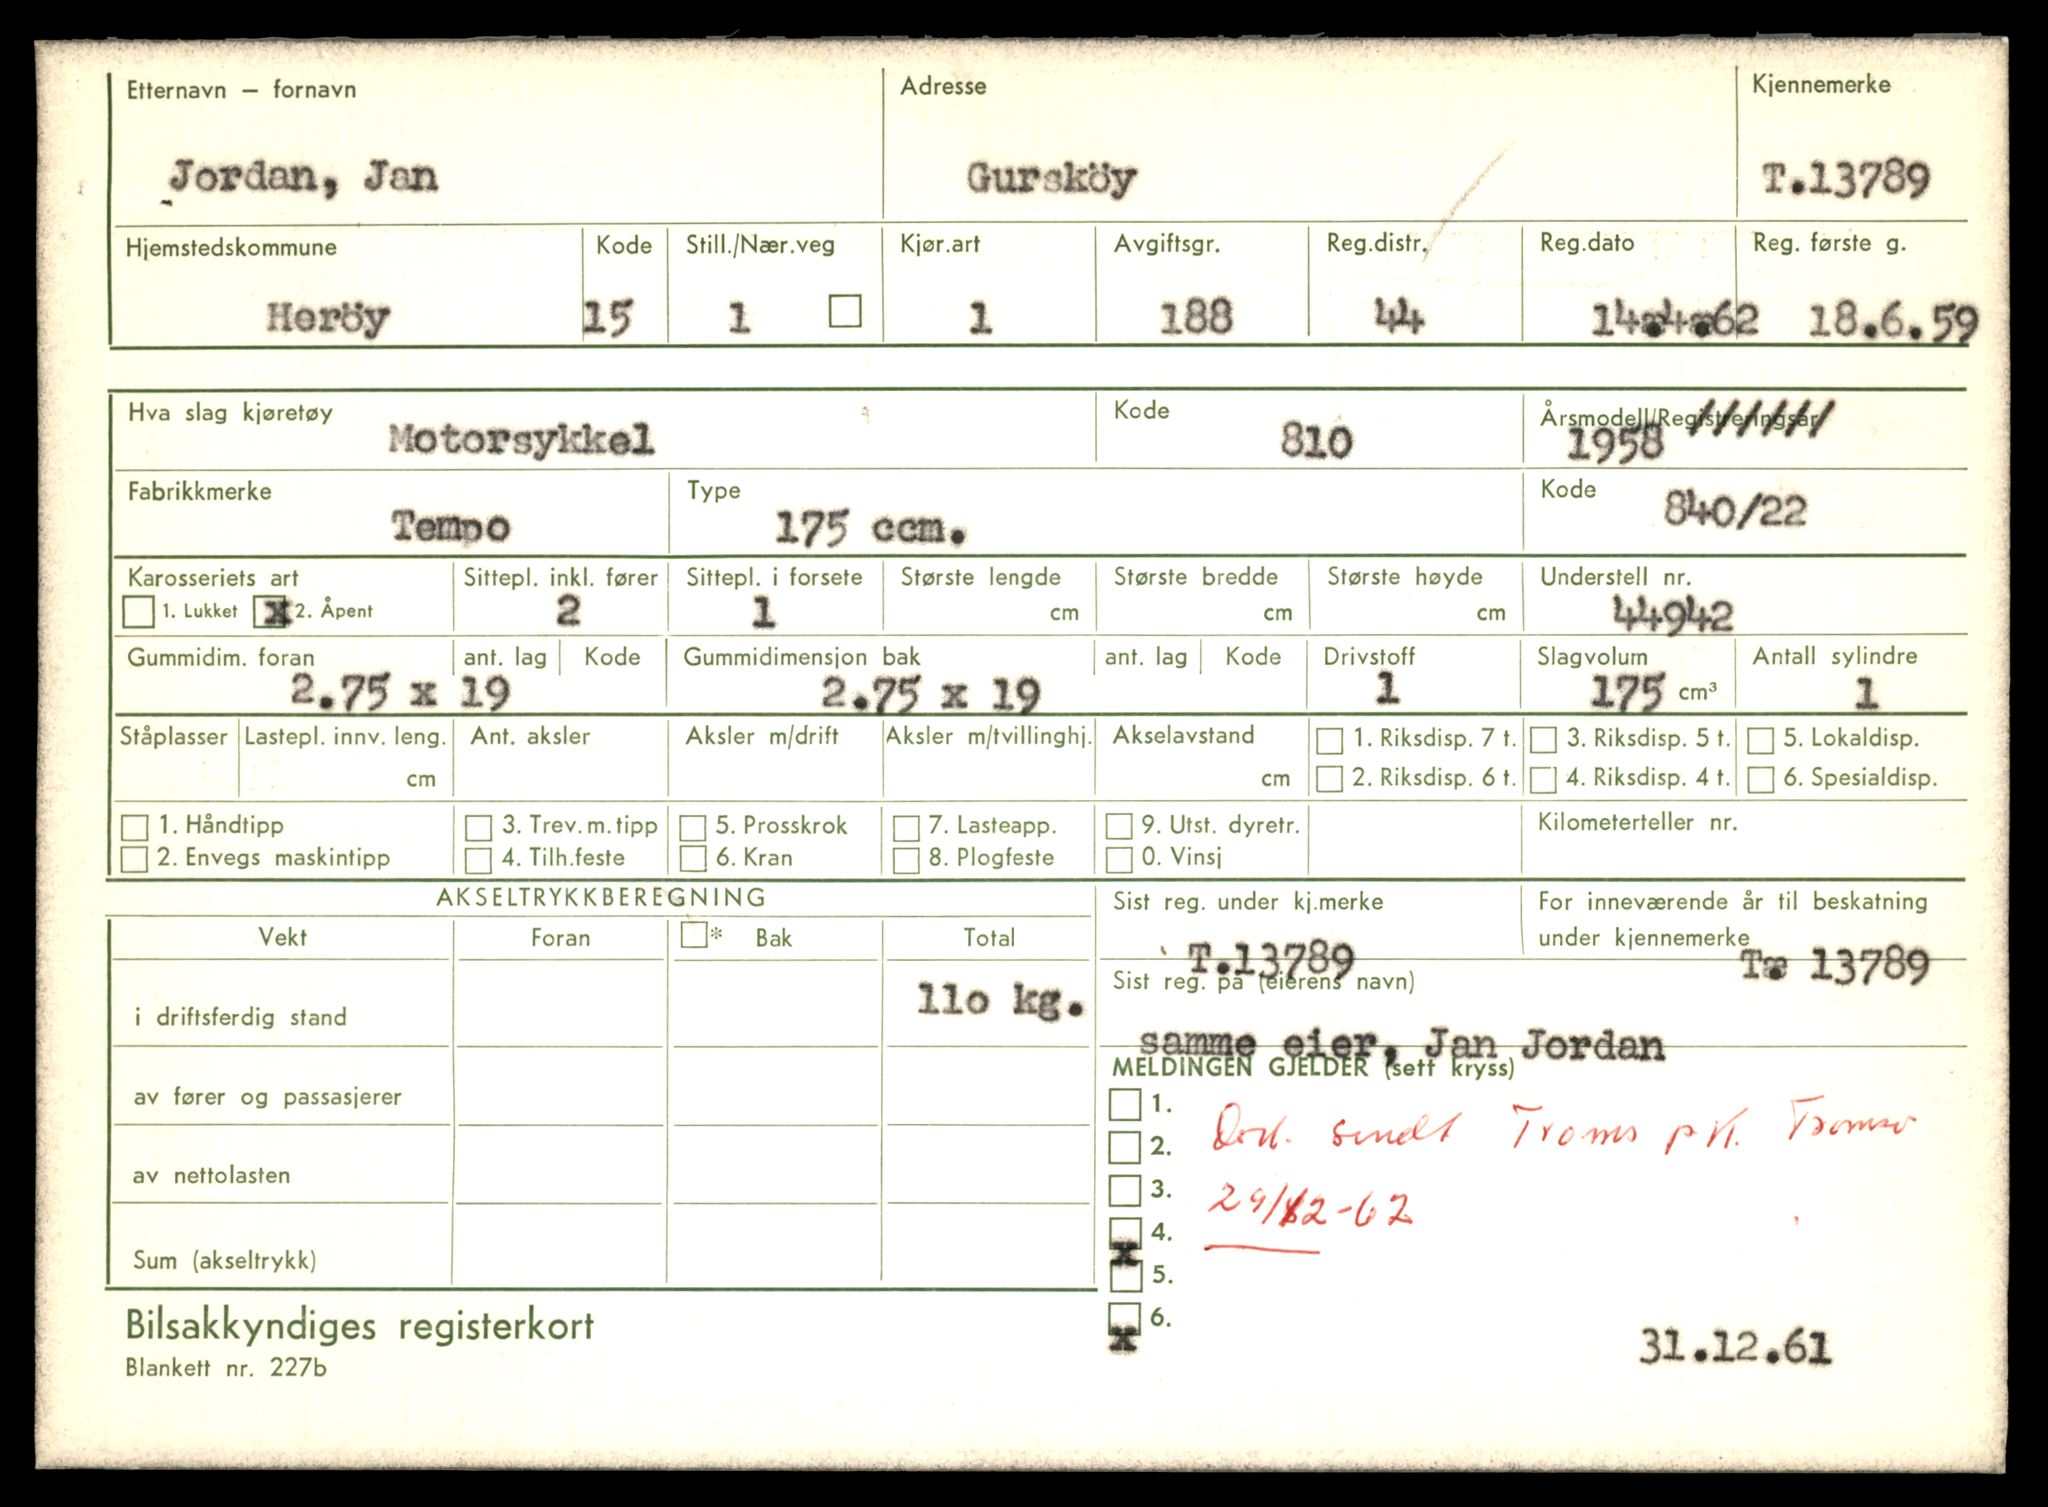 Etternavn — fornavn Adresse Kjennemerke
Jordan, Jan Gursköy T.13789
Hjemstedskommune Kode Still./Nær.veg Kjør.art Avgiftsgr. Reg.distr. Reg.dato Reg. første g.
Heröy 15 1 1 188 44 14.4.62 18.6.59
Hva slag kjøretøy Kode Årsmodell/Registreringsår
Motorsykkel 810 1958 //////
Fabrikkmerke Type Kode
Tempo 175 ccm. 840/22
Karosseriets art Sittepl. inkl. fører Sittepl. i forsete Største lengde Største bredde Største høyde Understell nr.
1. Lukket x 2. Åpent 2 1 cm cm cm 44942
Gummidim. foran ant. lag Kode Gummidimensjon bak ant. lag Kode Drivstoff Slagvolum Antall sylindre
2.75 x 19 2.75 x 19 1 175 cm³ 1
Ståplasser Lastepl. innv. leng. Ant. aksler Aksler m/drift Aksler m/tvillinghj. Akselavstand 1. Riksdisp. 7 t. 3. Riksdisp. 5 t. 5. Lokaldisp.
cm cm 2. Riksdisp. 6 t. 4. Riksdisp. 4 t. 6. Spesialdisp.
1. Håndtipp 3. Trev. m. tipp 5. Prosskrok 7. Lasteapp. 9. Utst. dyretr. Kilometerteller nr.
2. Envegs maskintipp 4. Tilh.feste 6. Kran 8. Plogfeste 0. Vinsj
AKSELTRYKKBEREGNING Sist reg. under kj.merke For inneværende år til beskatning
Vekt Foran * Bak Total under kjennemerke
T.13789 T. 13789
i driftsferdig stand 110 kg. Sist reg. på (eierens navn)
samme eier, Jan Jordan
MELDINGEN GJELDER (sett kryss)
av fører og passasjerer 1. sendt Troms pk. Tromsø
2.
av nettolasten 3. 29/12-62
4. x
Sum (akseltrykk) 5.
6. x
Bilsakkyndiges registerkort 31.12.61
Blankett nr. 227b